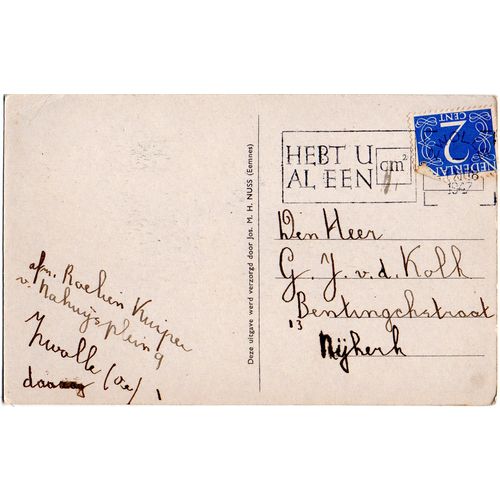 HEBT U
AL EEN
cm²
NEDERLAND
2
CENT
ZWOLLE
18
1947
Den Heer
G. J. v. d. Kolk
Bentinckstraat
13
Nijkerk
Deze uitgave werd verzorgd door Jos. M. H. NUSS (Eemnes)
afz. Roelien Kuiper
v. Nahuijsplein 9
Zwolle (o.e)